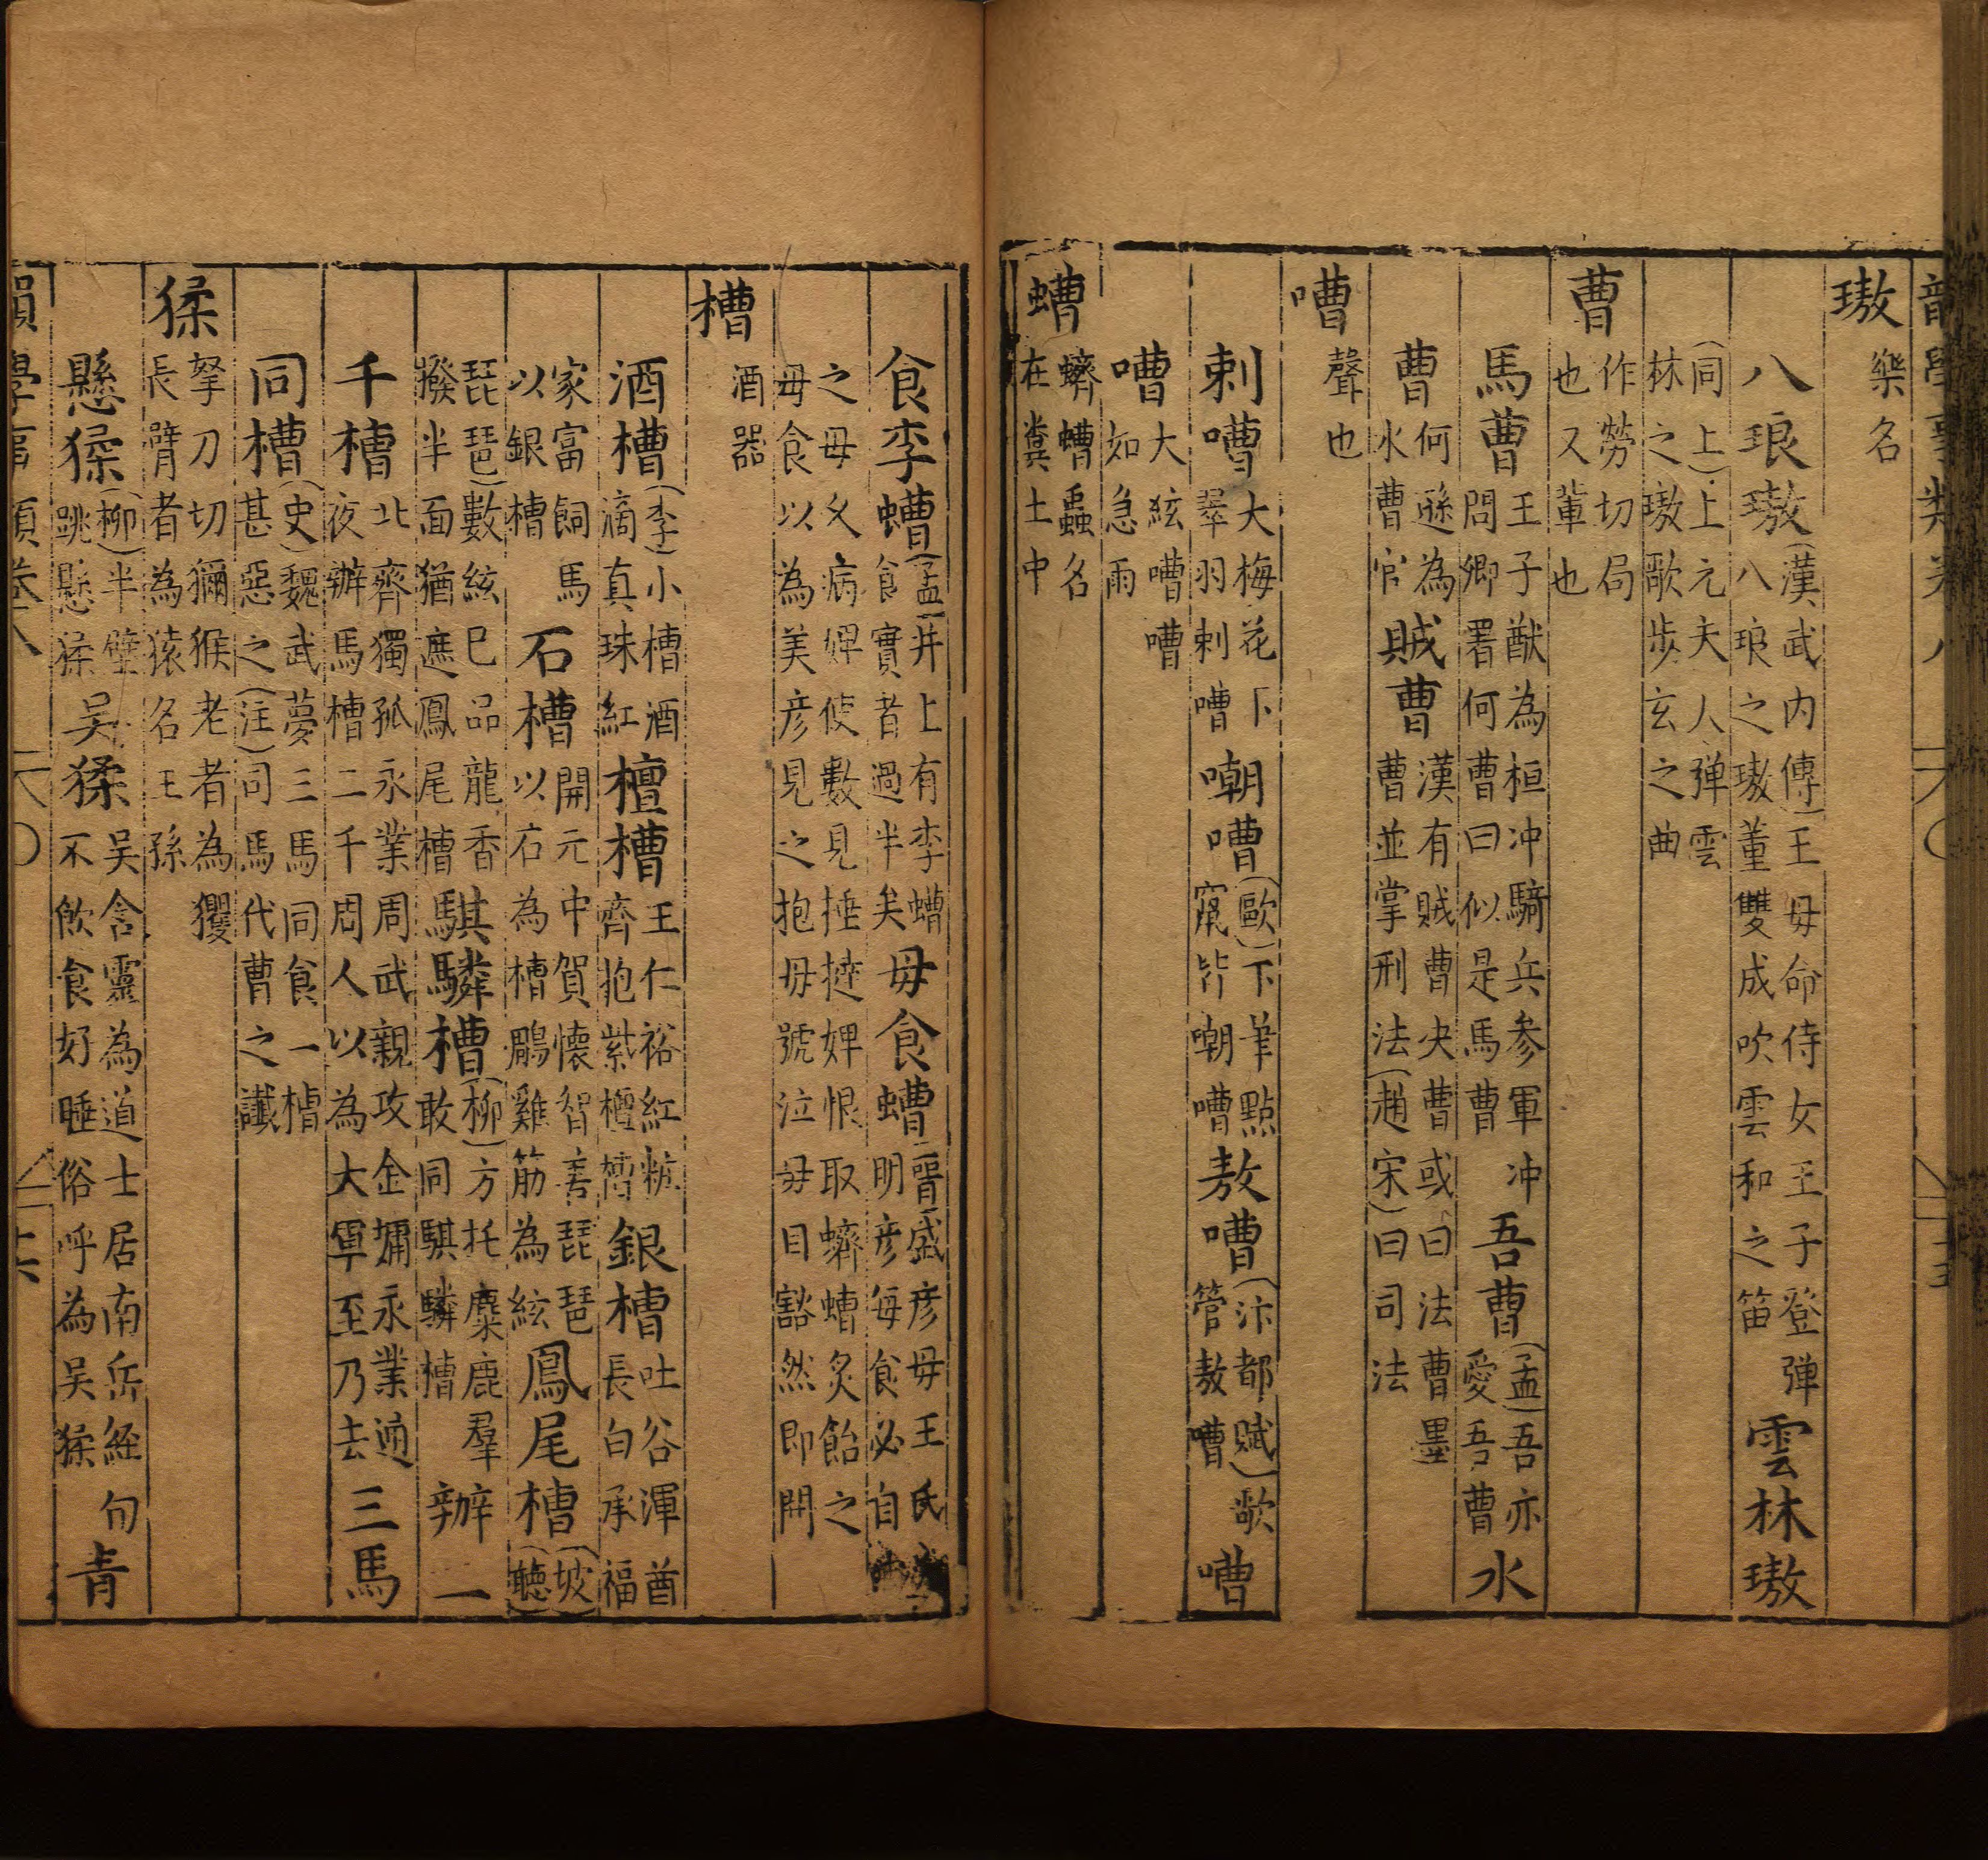 韻學事類卷八
璈樂名
八琅璈(漢武內傳)王母命侍女王子登彈八琅之璈董雙成吹雲和之笛雲林璈
(同上)上元夫人彈雲林之璈歌步玄之曲
曹作勞切局也又軰也
馬曹王子猷為桓冲騎兵参軍冲問卿署何曹曰似是馬曹吾曹(孟)吾亦愛吾曹水
曹何遜為水曹官賊曹漢有賊曹决曹或曰法曹墨曹並掌刑法(趙宋)曰司法
嘈聲也
刺嘈大梅花下翠羽刺嘈嘲嘈(歐)下筆點竄皆嘲嘈敖嘈(汴都賦)歌管敖嘈嘈
嘈大絃嘈嘈如急雨
螬蠐螬蟲名在糞土中
食李螬(孟)井上有李螬食實者過半矣母食螬(晋)盛彦母王氏明彦每食必自
之母久病婢使數見捶撻婢恨取蠐螬炙飴之母食以為美彦見之抱母號泣母目豁然即開
槽酒器
酒槽(李)小槽酒滴真珠紅檀槽王仁裕紅粧齊抱紫檀槽銀槽吐谷渾酋長白承福
家富飼馬以銀槽石槽開元中賀懷智善琵琶以石為槽鵾雞筋為絃鳳尾槽(坡)(聽
琵琶)數絃已品龍香撥半面猶遮鳳尾槽騏驎槽(柳)方托麋鹿羣敢同騏驎槽辦一
千槽北齊獨孤永業周武親攻金墉永業通夜辦馬槽二千周人以為大軍至乃去三馬
同槽(史)魏武夢三馬同食一槽甚惡之(注)司馬代曹之讖
猱拏刀切獼猴老者為玃長臂者為猿名王孫
懸猱(柳)半壁跳懸猱吴猱吴含靈為道士居南岳経旬不飲食好睡俗呼為吴猱青
韻學事類卷八